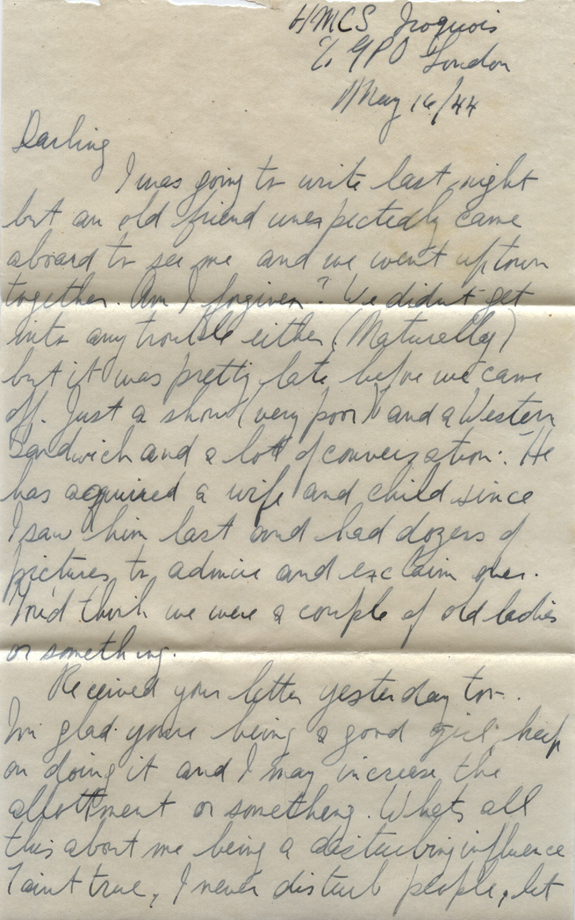 HMCS Iroquois
℅ GPO London
May 16/44
Darling
I was going to write last night
but an old friend unexpectedly came
aboard to see me and we went uptown
together. Am I forgiven? We didn't get
into any trouble either (Naturally)
but it was pretty late before we came
off. Just a show (very poor) and a Western
Sandwich and a lot of conversation. He
has acquired a wife and child since
I saw him last and had dozens of
pictures to admire and exclaim over.
You'd think we were a couple of old ladies
or something.
Received your letter yesterday too.
I'm glad you're being a good girl, keep
on doing it and I may increase the
allottment or something. Whats all
this about me being a disturbing influence
Taint true, I never disturb people, let